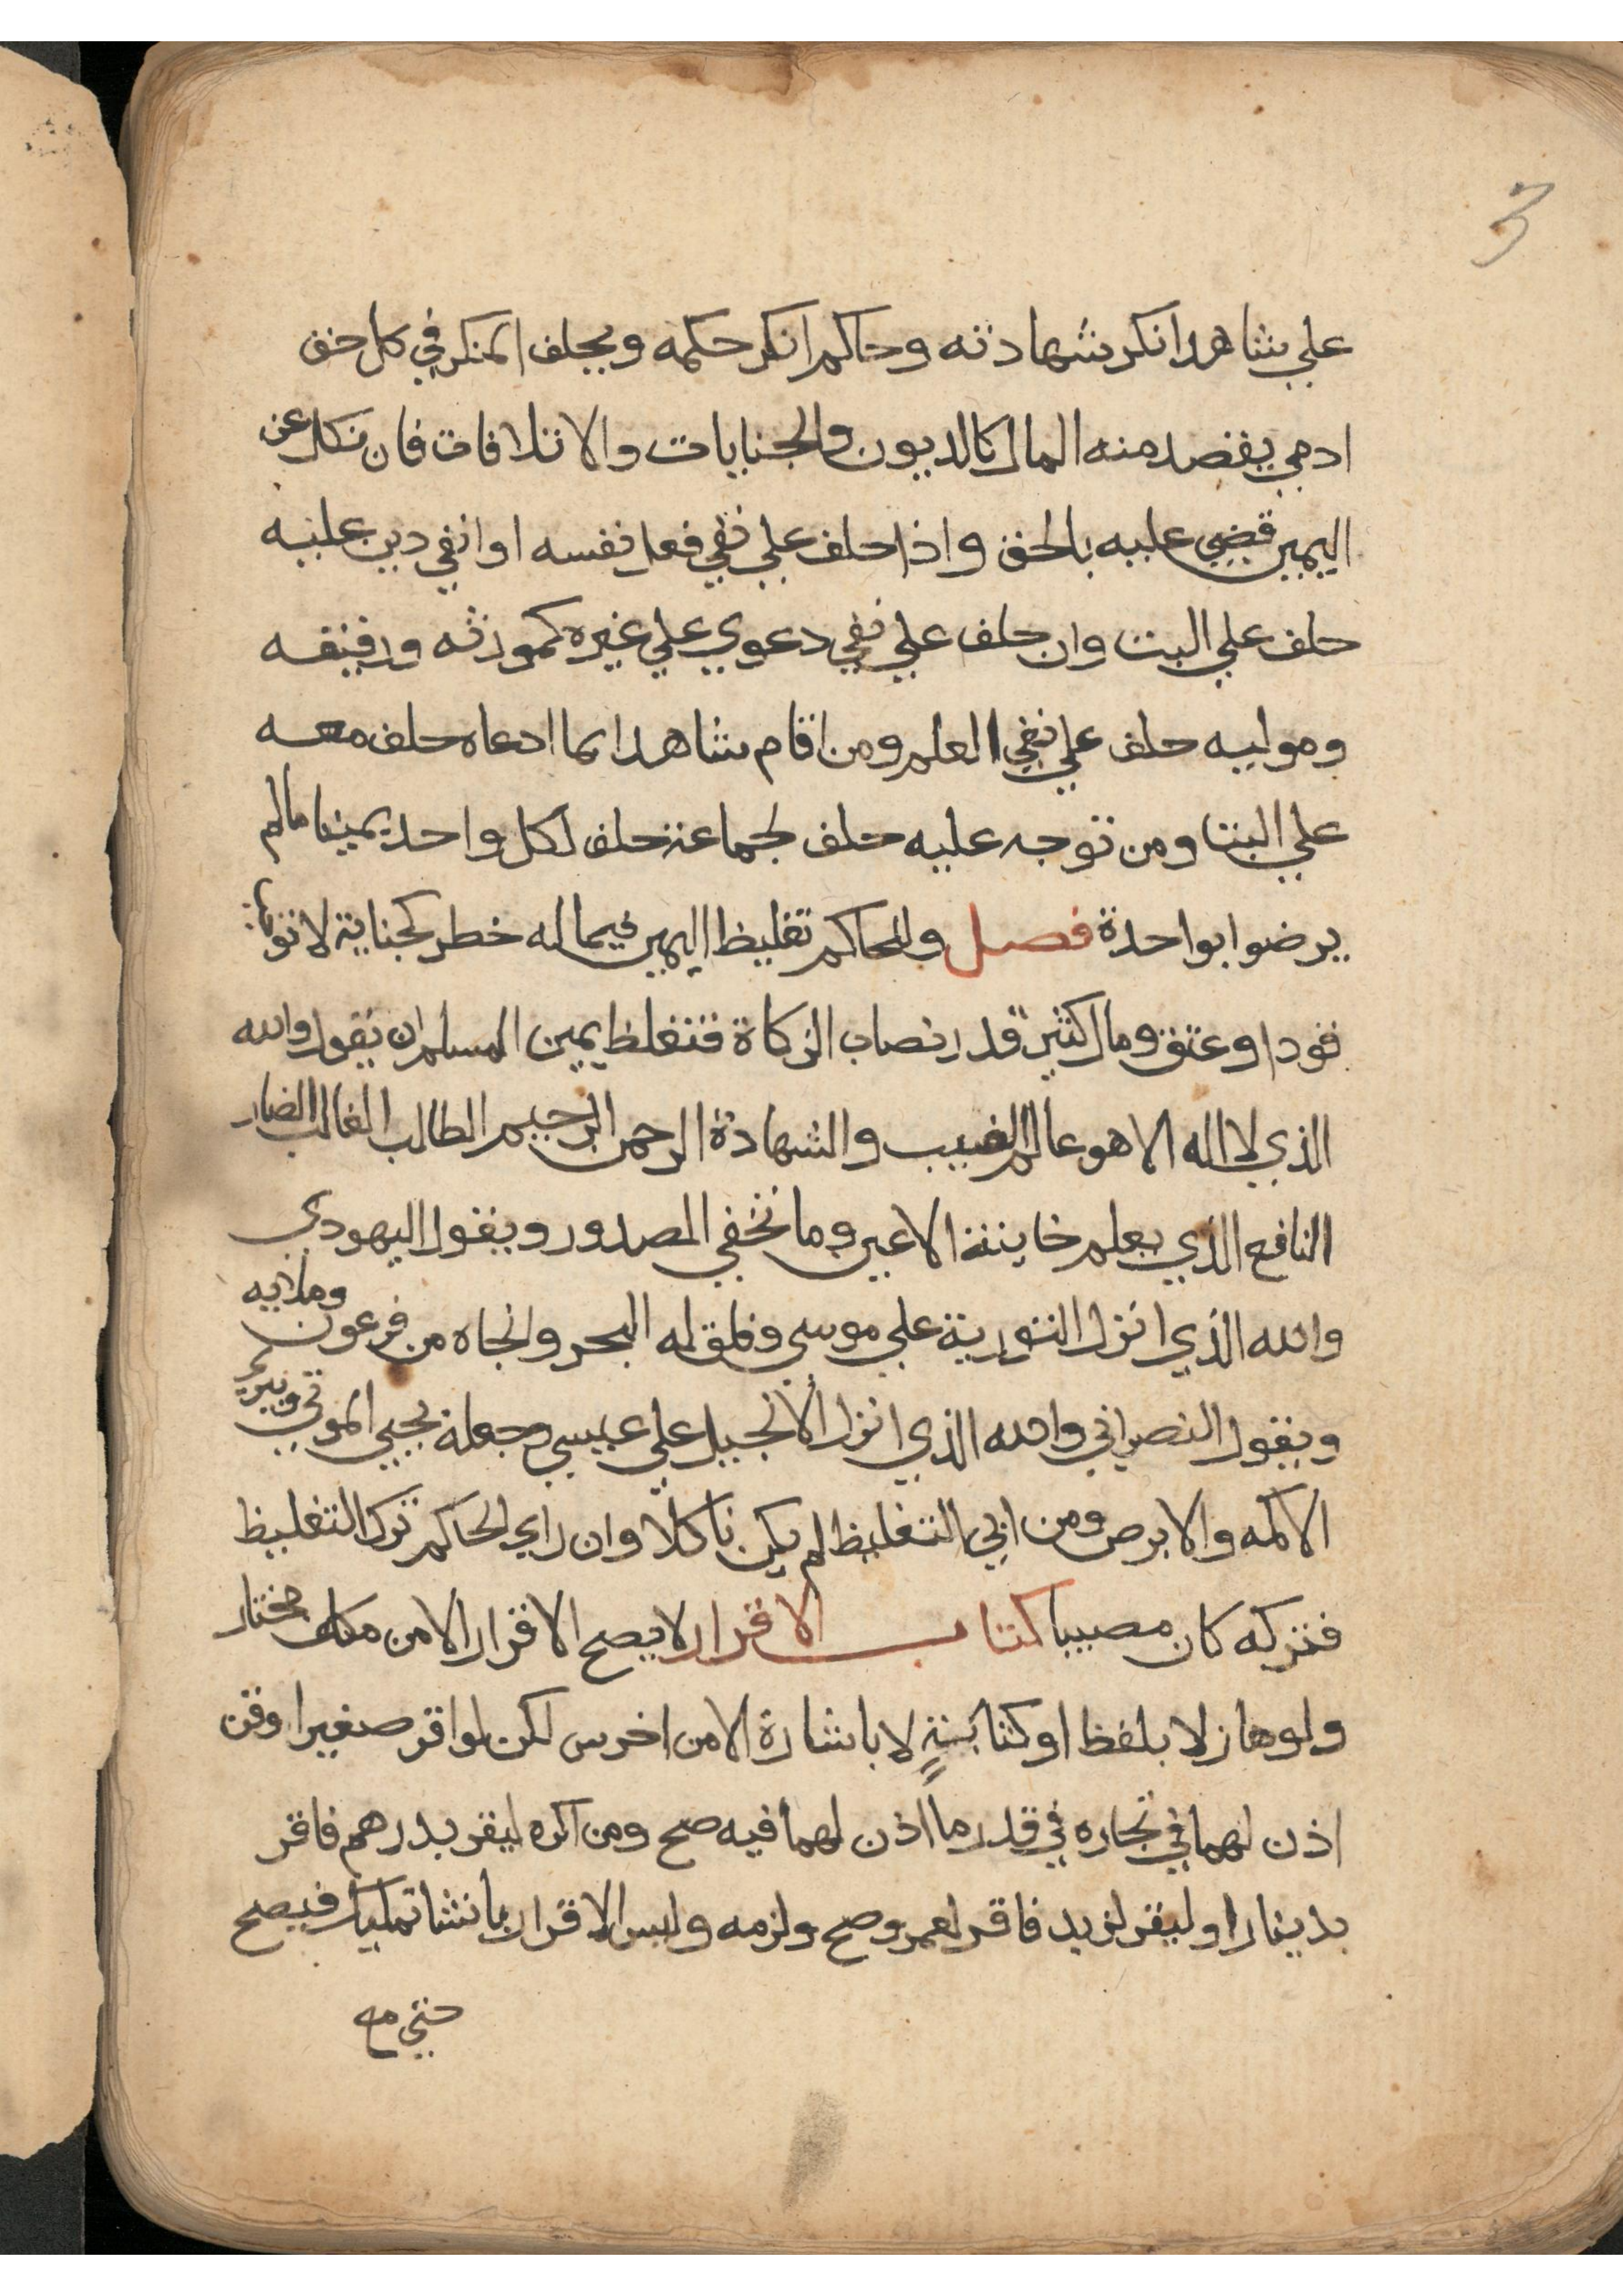 3
علي شاهد انكر شهادته وحاكم انكر حكمه ويحلف المنكر في كل حق
ادمي يقصد منه المال كالديون والجنايات والاتلافات فان نكل عن
اليمين قضي عليه بالحق واذا حلف علي نفي فعل نفسه او انفي دين عليه
حلف علي البت وان حلف علي نفي دعوي علي غيره كمورثه ورقيقه
وموليه حلف علي نفي العلم ومن اقام شاهدا بما ادعاه حلف معه
علي البتا ومن توجه عليه حلف لجماعة حلف لكل واحد يمينا مالم
يرضوا بواحدة فصل وللحاكم تغليظ اليمين فيما له خطر كجناية لا توجب
قودا وعتق ومال كثير قدر نصاب الزكاة فتغلظ يمين المسلم ان يقول والله
الذي لا اله الا هو عالم الغيب والشهادة الرحمن الرحيم الطالب الغالب الضار
النافع الذي يعلم خاينة الاعين وما تخفي الصدور ويقول اليهودي
والله الذي انزل التورية علي موسي وفلق له البحر وانجاه من فرعون وملايه
ويقول النصراني والله الذي انزل الانجيل علي عيسي وجعله يحيي الموتي ويبري
الاكمه والابرص ومن ابي التغليظ لم يكن ناكلا وان راي الحاكم ترك التغليظ
فتركه كان مصيبا كتاب الاقرار لا يصح الاقرار الا من مكلف مختار
ولو هازلا بلفظ او كتابة لا باشارة الا من اخرس لكن لو اقر صغير او قن
اذن لهما في تجاره في قدر ما اذن لهما فيه صح ومن اكره ليقر بدرهم فاقر
بدينار او ليقر لزيد فاقر لعمرو صح ولزمه وليس الاقرار بانشا تمليك فيصح
حتي مع